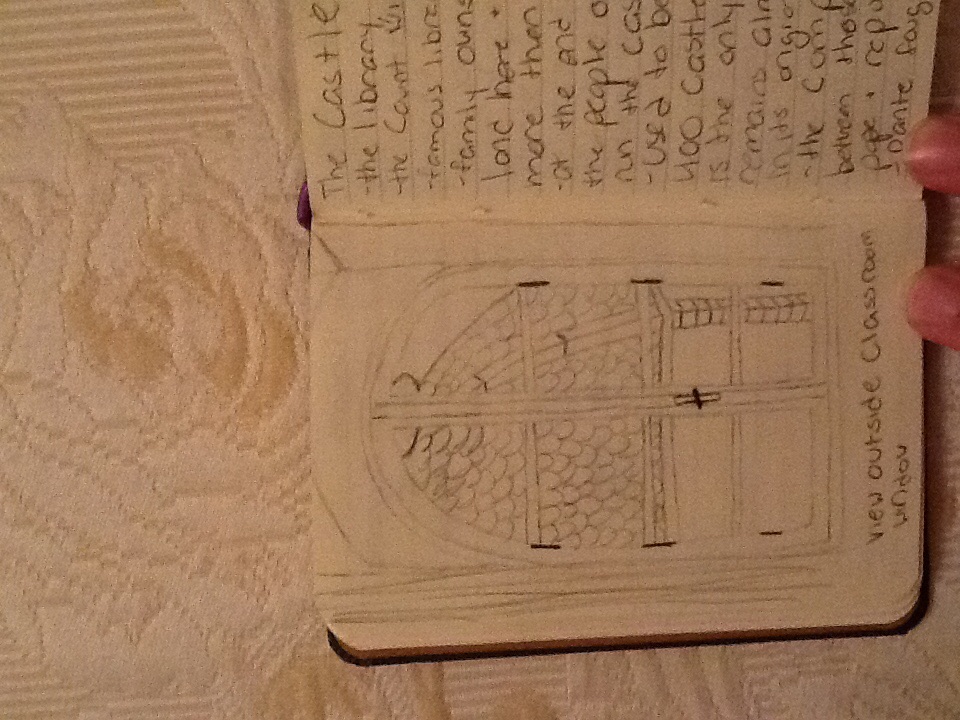 view outside Classroom
window
The Castle
-the library
-the Count
-famous libra
-family owns
long here +
more than
-at the end
the people o
run the cas
-used to be
400 castle
is the only
remains alm
in its origi
-the comp
between thos
pope + repu
-Dante foug